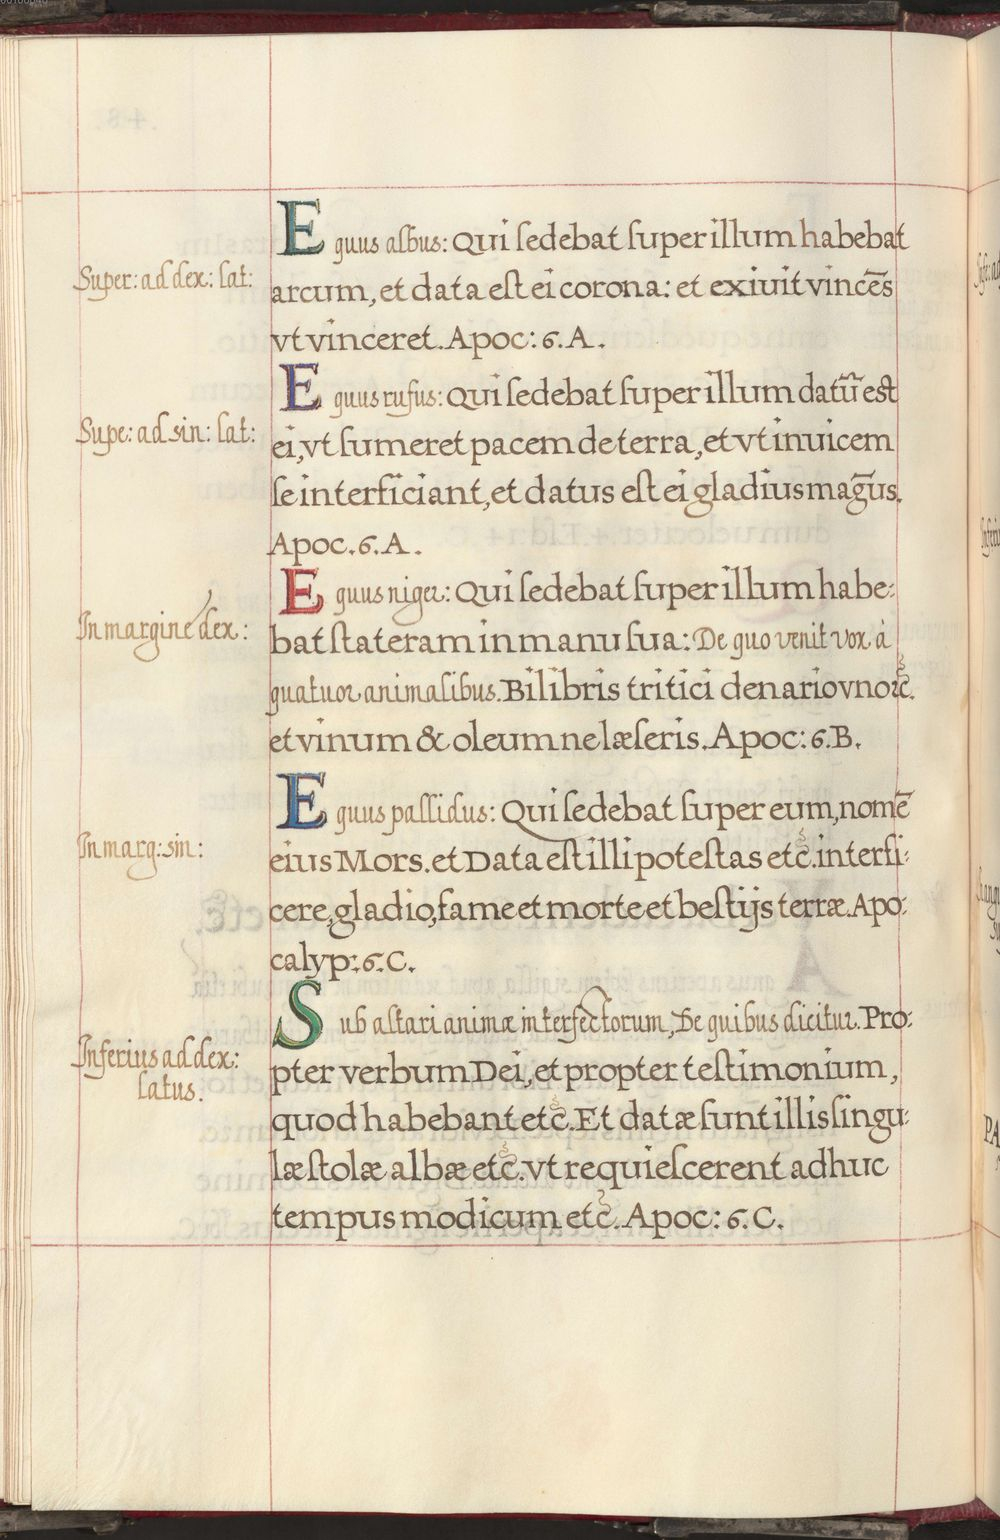 Equus albus: Qui sedebat super illum habebat
Super: ad dex: lat:
arcum, et data est ei corona: et exiuit vincēs
vt vinceret. Apoc: 6. A.
Equus rufus: Qui sedebat super illum datũ est
Supe: ad sin: lat:
ei, vt sumeret pacem de terra, et vt inuicem
se interficiant, et datus est ei gladius mag̃us.
Apoc. 6. A.
Equus niger: Qui sedebat super illum habe:
In margine dex:
bat stateram in manu sua: De quo venit vox à
quatuor animalibus. Bilibris tritici denario vno etc̃.
et vinum & oleum ne læseris. Apoc: 6. B.
Equus pallidus: Qui sedebat super eum, nomē
In marg: sin:
eius Mors. et Data est illi potestas etc̃. interfi:
cere, gladio, fame et morte et bestijs terræ. Apo:
calyp: 6. C.
Sub altari animæ interfectorum, De quibus dicitur. Pro:
Inferius ad dex:
latus.
pter verbum Dei, et propter testimonium,
quod habebant etc̃. Et datæ sunt illis singu:
læ stolæ albæ etc̃. vt requiescerent adhuc
tempus modicum etc̃. Apoc: 6. C.